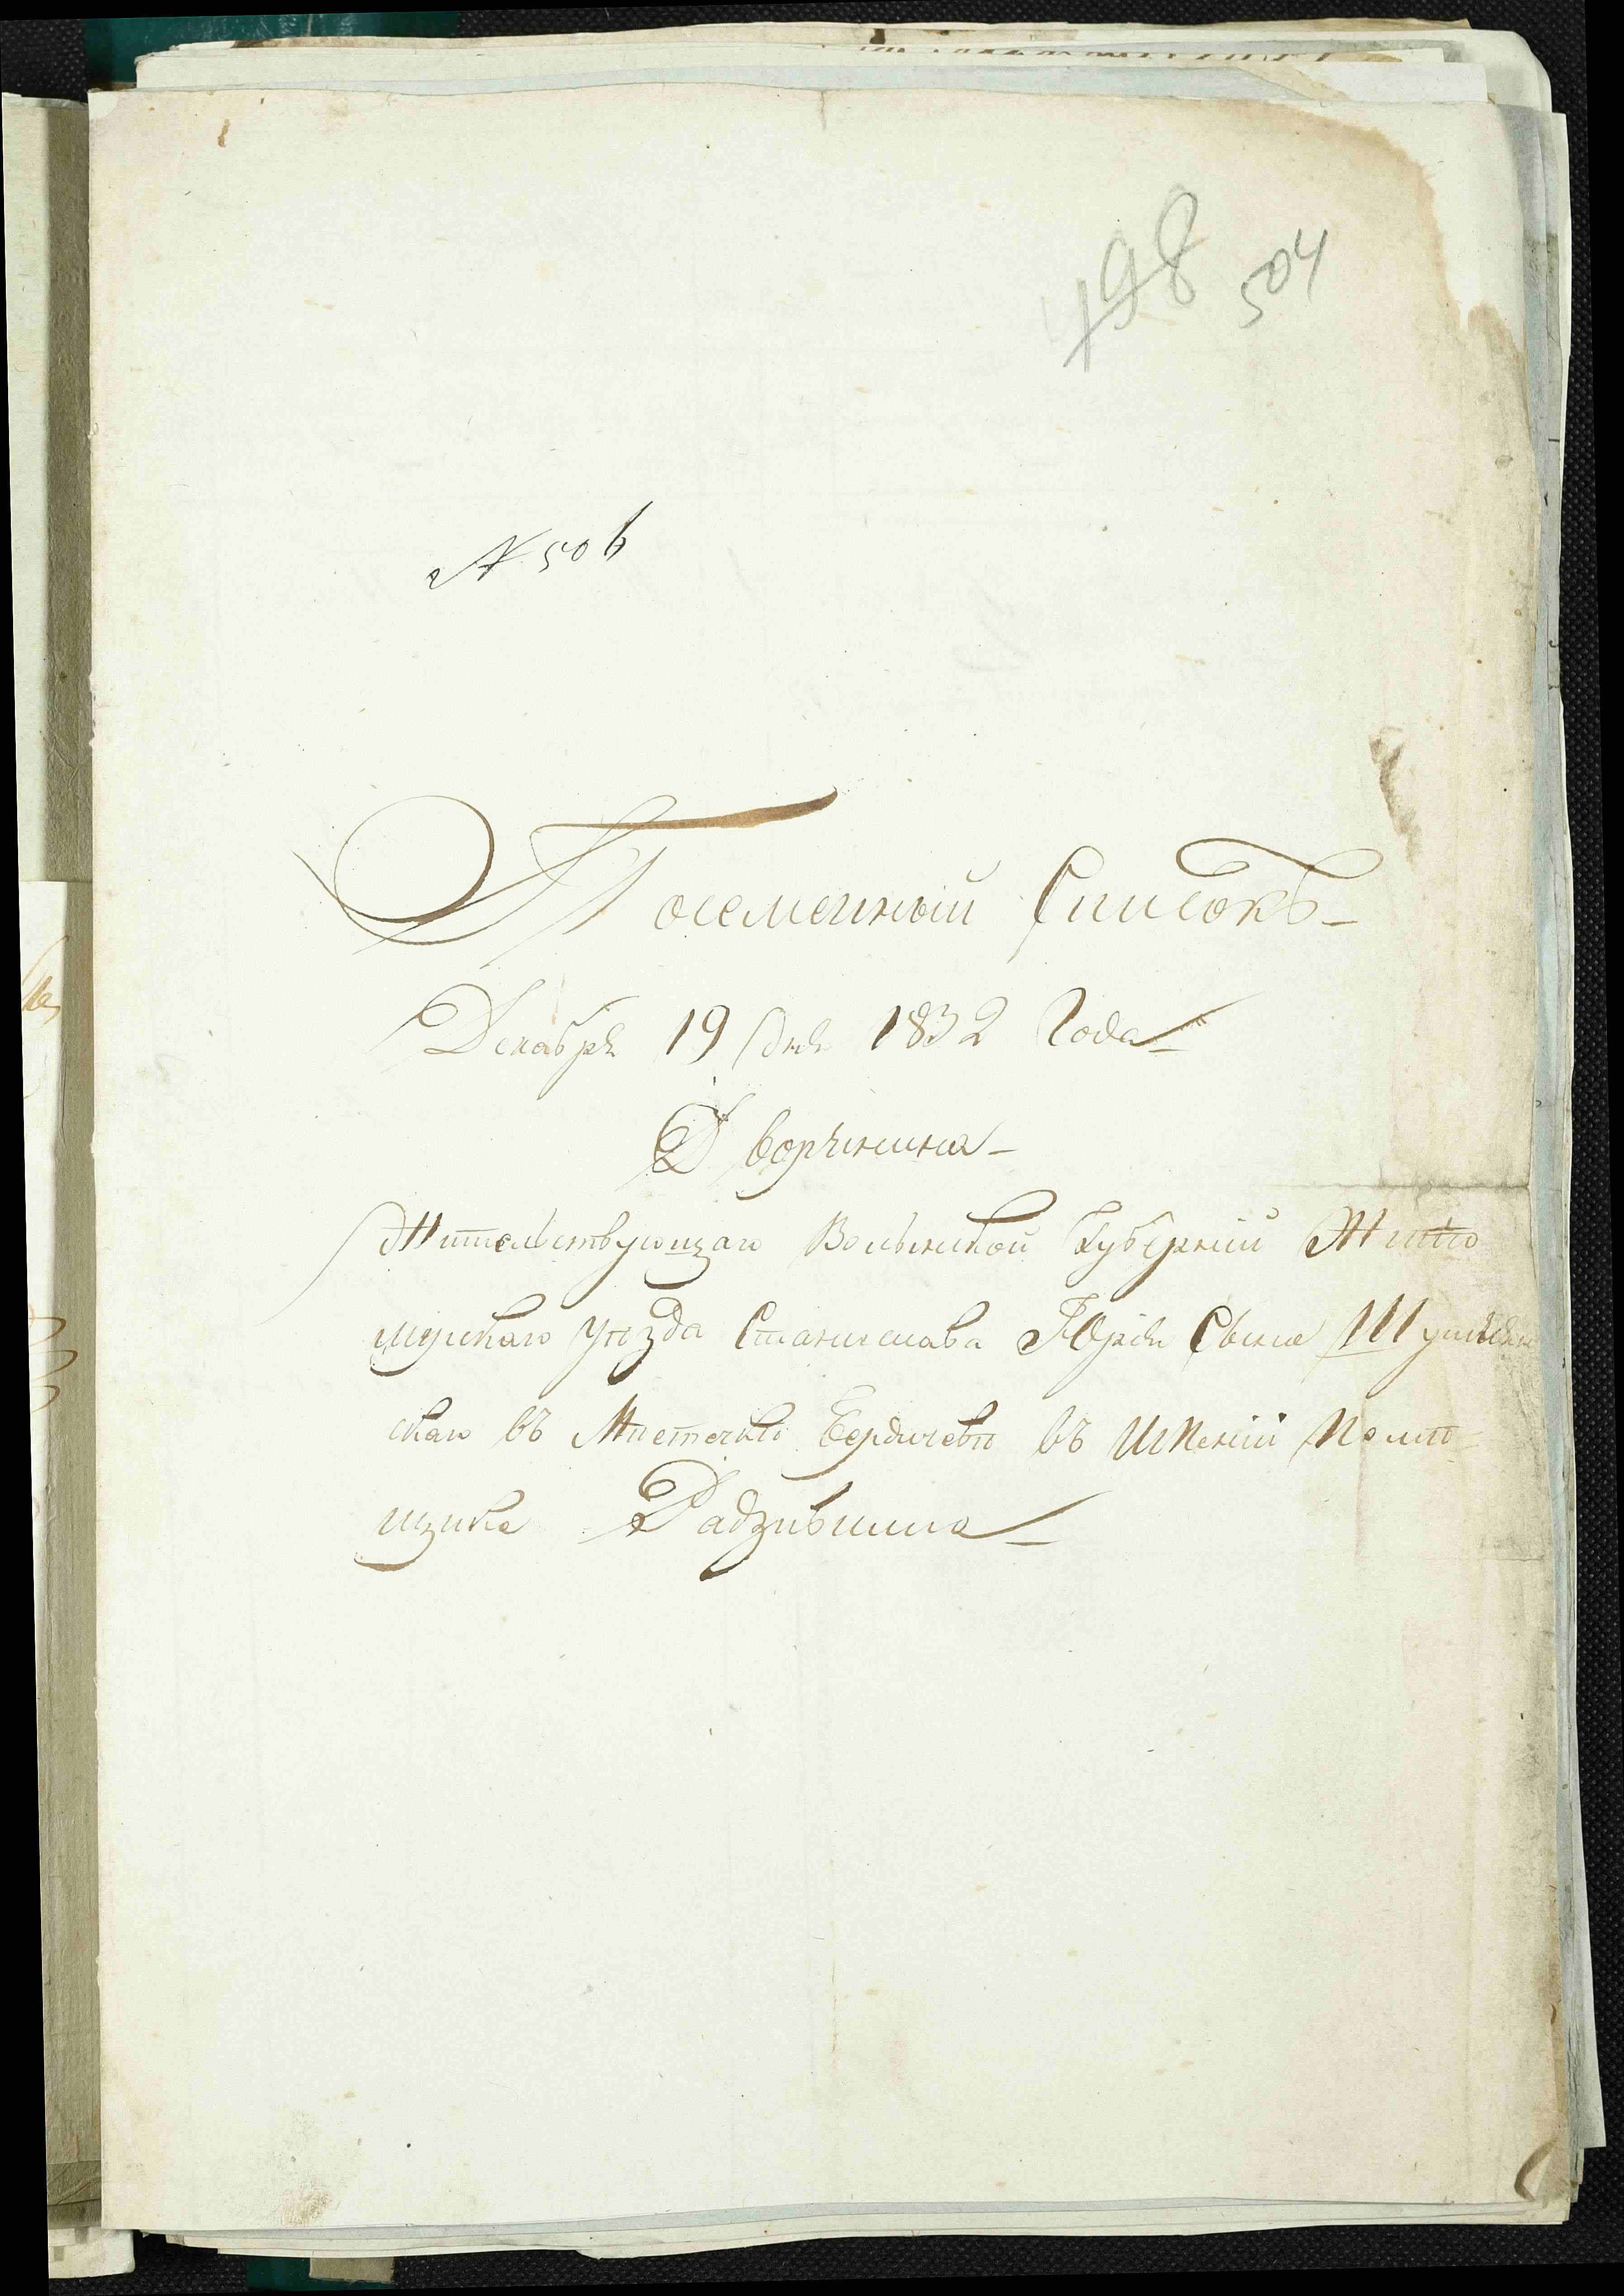 498 504
№ 506
Посемейный Списокъ
Декабря 19 дня 1832 Года
Дворянина
Жительствующаго Волынской Губерніи Жито
мирскаго уѣзда Станислава Юрія Сына
скаго въ Местечкѣ Бердичевѣ въ Имѣніи Помѣ
щика Радзивила